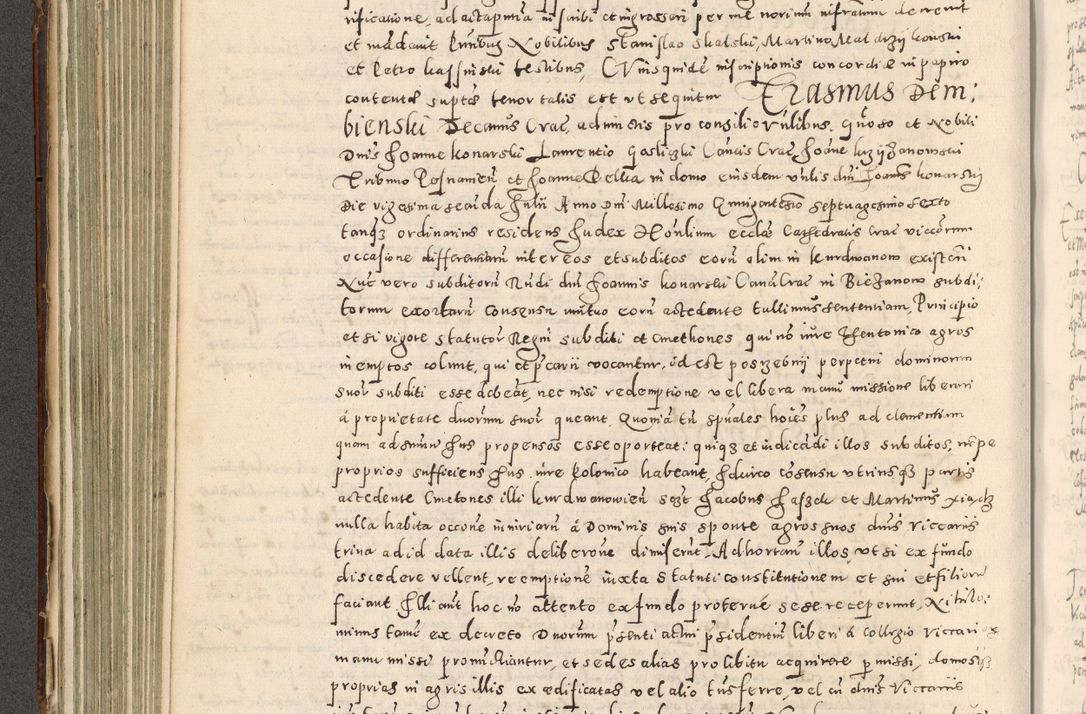 rificatione, ad acta pntia inscribi et ingrossari per me notarium infratum decrevit
et mandavit Pntibus Nobilibus Stanislao Skalski, Martino Konski
et Petro Kassinski testibus, Cuiusquidē inscriptionis concordiæ in papiro
contentæ suptæ tenor talis est ut sequitur Erasmus Dem:
bienski Decanus Crac, adiunctis pro consilio Vnlibus. Gnoso et Nobili
Dnis Joanne Konarski Laurentio Goslicki Cančis Crac Joāne Krzijzanowski
Tribuno Posnanieñ et Joanne Pellia in domo eiusdem Vnlis dni Joanis Konarskij
Die vigesima secūda Julii Anno Dni Millesimo Quingentesio septuagesimo sexto
tanqz ordinarius residens Judex eccłæ Cathedralis Crac viccorum
occasione differentiarū inter eos et subditos eorū olim in Kurdwanow existeñ
Nūc vero subditorū Nudi dni Joannis Konarski Canci Crac in Biezanow subdi:
torum exortarū consensu mutuo eorū accedente tulimus sententiam, Principio
etsi vigore statutor Regni subditi et Cmethones qui nō iure Theutonico agros
in emptos colunt, qui et pcarii vocantur, id est poszebnij perpetui dominorum
suor subditi esse debeāt, nec nisi redemptione vel libera manu missione liberari
á proprietate duorum suor queant. Quoniā tn spuales hoīes plus ad clementiam
quam ad smmū Jus propensos esse oporteat: quiqz et iudicādi illos subditos, nēpe
proprios sufficiens Jus iure Polonico habeant, Idcirco cōsensu utriusqz partis
accedente Cmetones illi Kurdwanowieñ sczt Jacobus Jaszek et Martinus Xiązk
nulla habita occone iniuriarū á Dominis suis sponte agros suos dnis viccariis
trina ad id data illis deliberone dimiserūt. Adhortati illos ut si ex fundo
discedere vellent, reemptionē iuxta Statuti constitutionem et sui et filiorū
faciant. Illi aut hoc nō attento ex fundo protervé sese receperunt, Nihilo:
minus tamē ex decreto Duorum pſenti actui pſidentiū liberi á collegio viccariox
manu missi pronuntiantur, et sedes alias pro libitu acquirere pmissi, domosqz
proprias in agris illis ex ædificatas vel alio trāsferre, vel cū dnis Viccariis